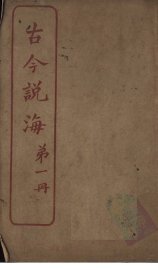 古今説海
第一冊